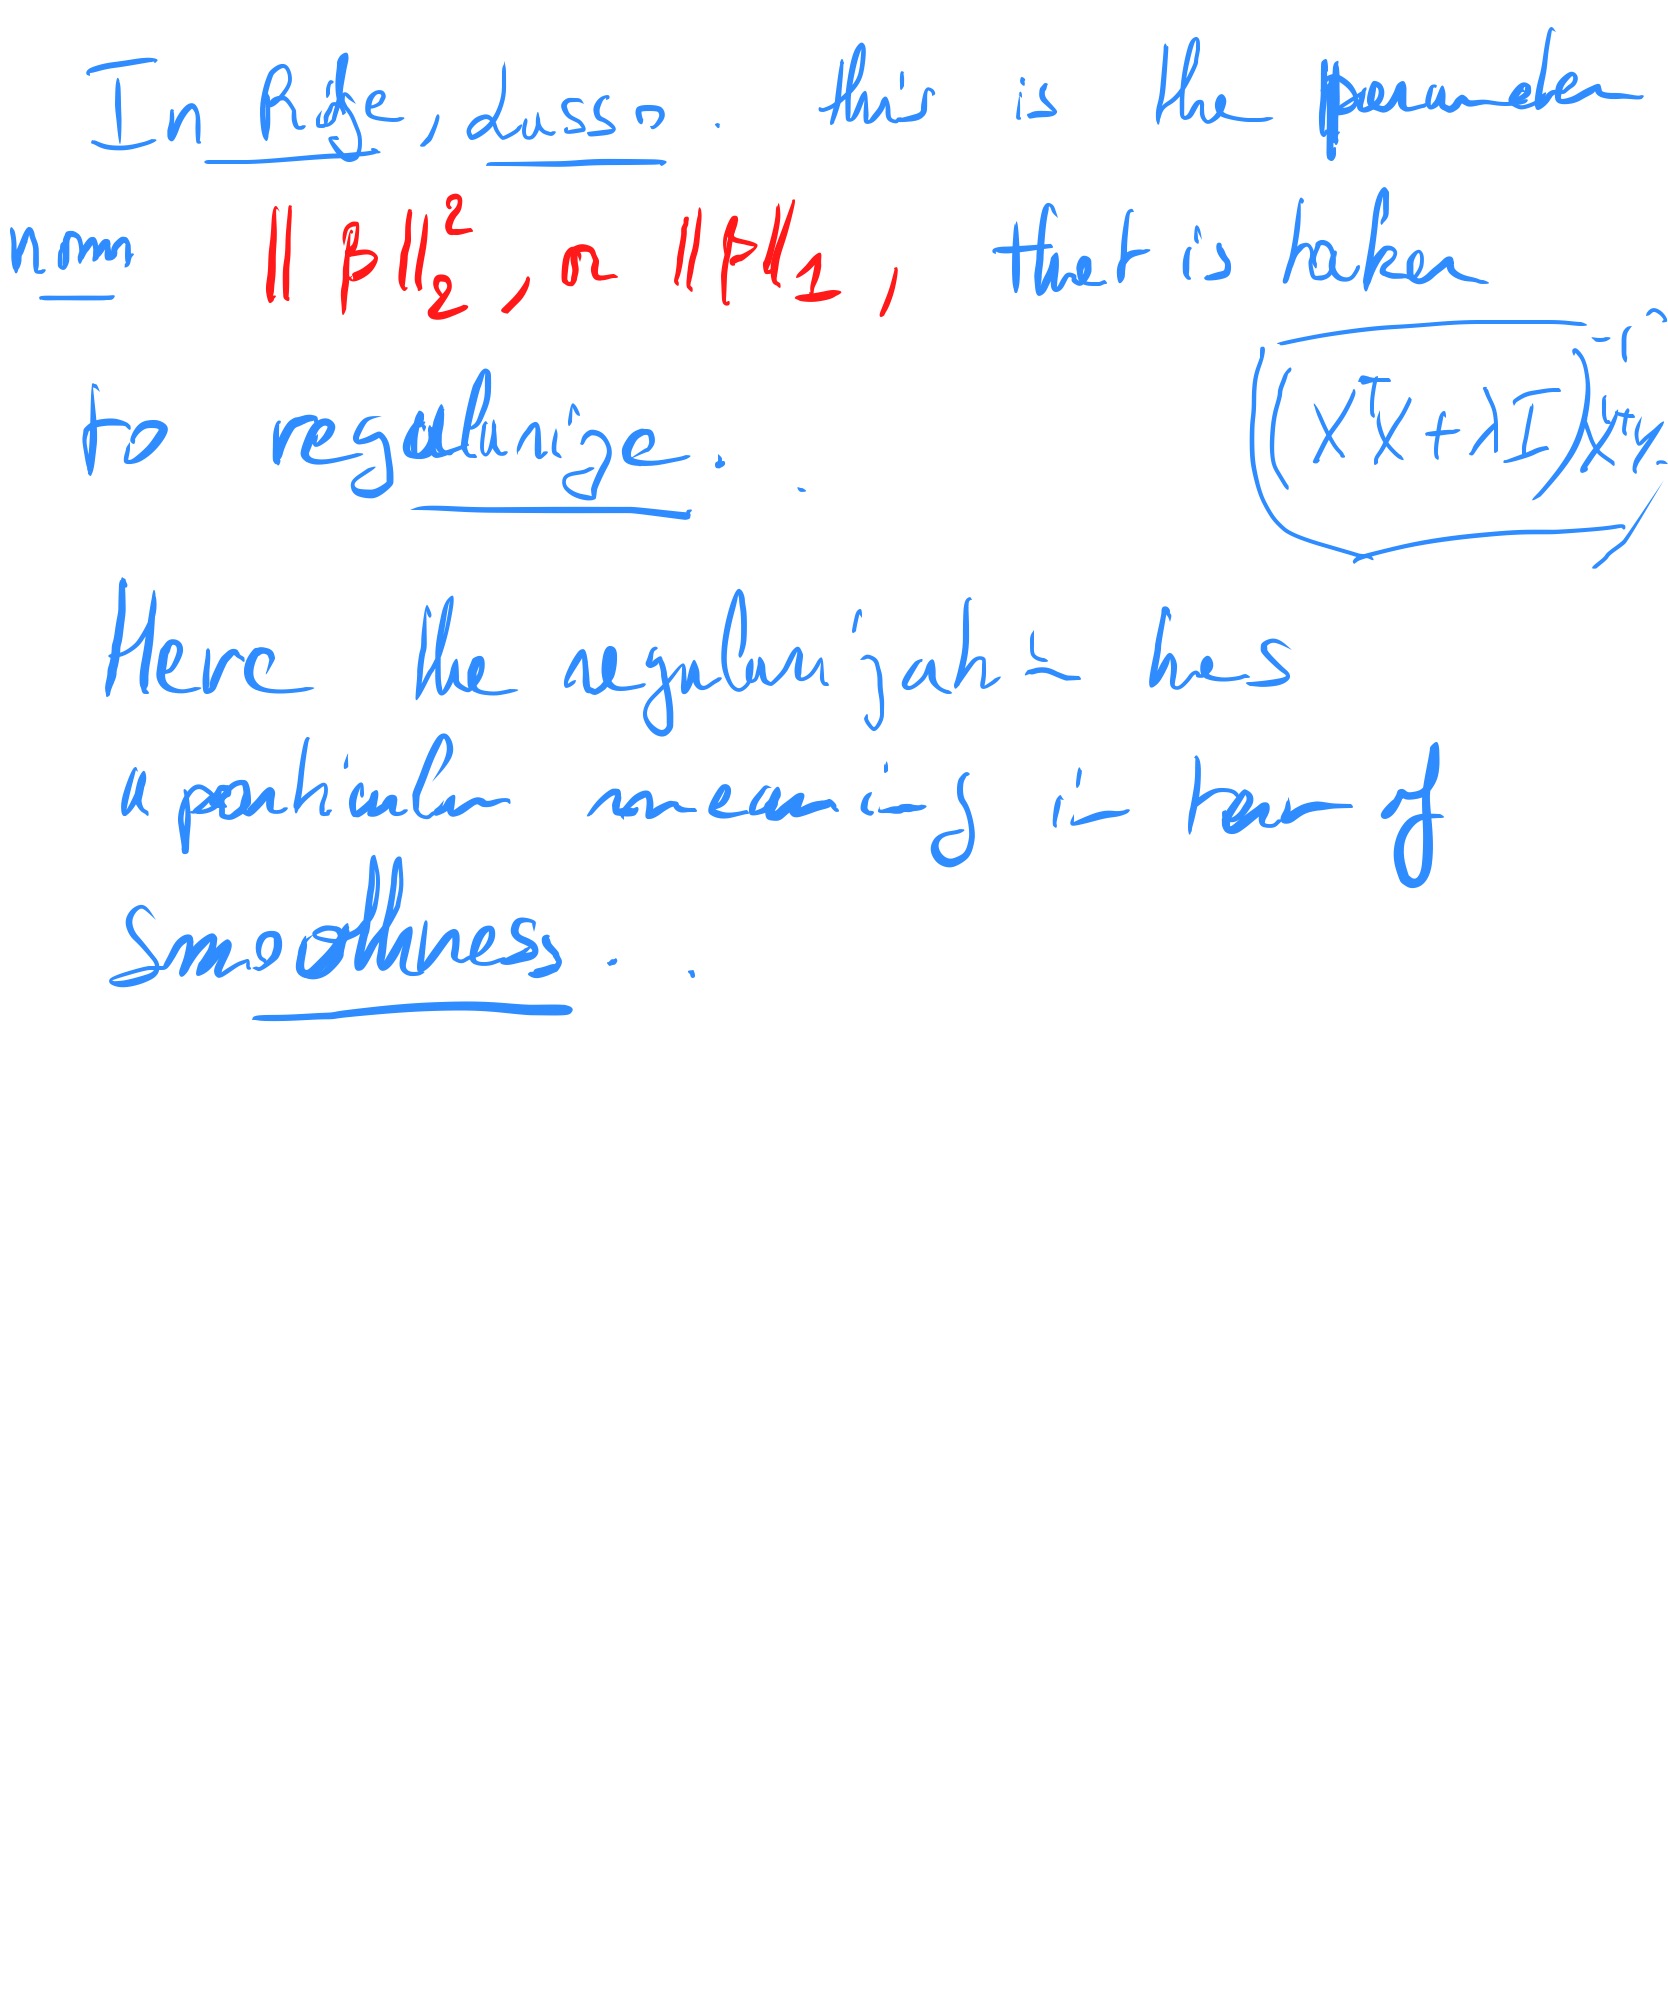 In Ridge, Lasso. this is the parameter
norm ||β||₂², or ||β||₁, that is taken
to regularize.
(XᵀX + λI)⁻¹Xᵀy
Here the regularization has
a particular meaning in term of
Smoothness..